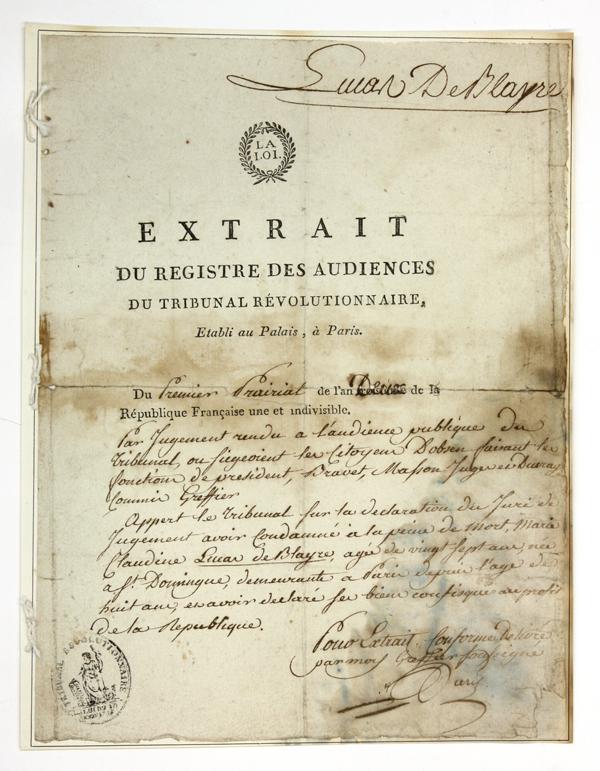 Lucas De Blayre
LA
LOI.
EXTRAIT
DU REGISTRE DES AUDIENCES
DU TRIBUNAL RÉVOLUTIONNAIRE,
Etabli au Palais, à Paris.
Du Premier Prairial de l'an Deuxe de la
République Française une et indivisible.
Par Jugement rendu a l'audience publique du
Tribunal, ou siegeoient les Citoyens Dobsen faisant les
fonctions de president, Bravet, Masson Juges et Ducray
Commis Greffier
Appert le Tribunal sur la declaration du Juré de
Jugement avoir Condamné a la peine de Mort, Marie
Claudine Lucas de Blayre, agée de vingt sept ans, née
a St. Domingue, demeurante a Paris depuis l'age de
huit ans, et avoir declaré ses biens confisqués au profit
de la Republique.
Pour Extrait conforme délivré
par moy Greffier soussigné
TRIBUNAL REVOLUTIONNAIRE